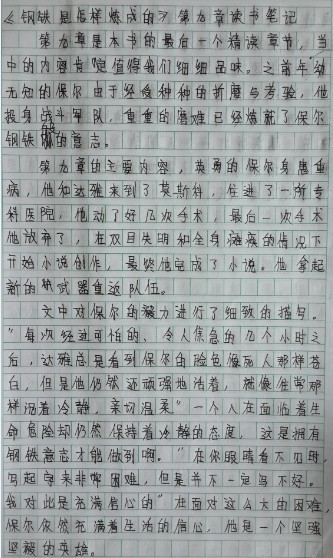 《钢铁是怎样炼成的》第九章读书笔记
第九章是本书的最后一个精读章节，当
中的内容肯定值得我们细细品味。之前年幼
无知的保尔由于经受种种的折磨与考验，他
投身战斗军队，重重的磨难已经炼就了保尔
钢铁般的意志。
第九章的主要内容，英勇的保尔身患重
病，他和达雅来到了莫斯科，住进了一所专
科医院，他动了好几次手术，最后一次手术
他放弃了，在双目失明和全身瘫痪的情况下
开始小说创作，最终他完成了小说。他拿起
新的武器重返队伍。
文中对保尔的毅力进行了细致的描写。
“每次经过可怕的、令人焦急的几个小时之
后，达雅总是看到保尔的脸色像死人那样苍
白，但是他仍然还顽强地活着，就像往常那
样沉着冷静，亲切温柔”一个人在面临着生
命危险却仍然保持着冷静的态度，这是拥有
钢铁意志才能做到啊。“在你眼睛看不见时，
写起字来非常困难，但是并不一定写不好。
我对此是充满信心的”在面对这么大的困难，
保尔依然充满着生活的信心，他是一个坚强
坚毅的英雄。